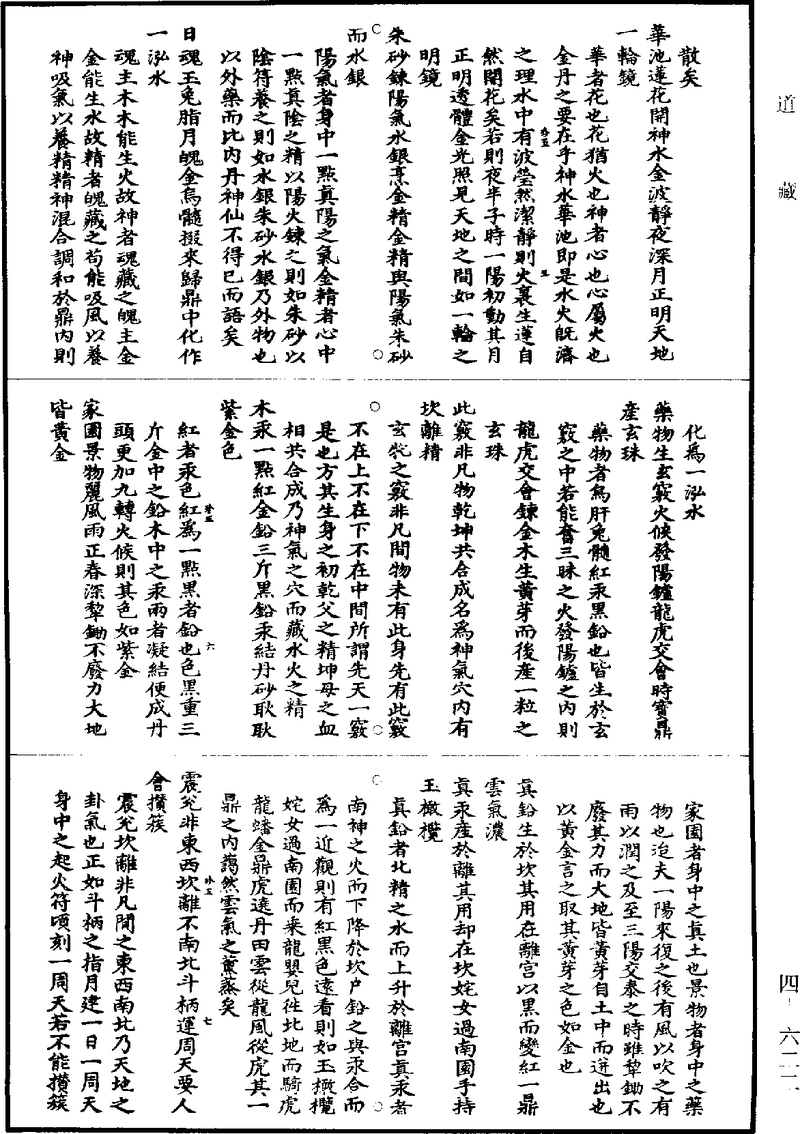 道藏
散矣
華池蓮花開神水金波靜夜深月正明天地
一輪鏡
華者花也花猶火也神者心也心屬火也
金丹之要在乎神水華池即是水火既濟
之理水中有波瑩然潔靜則火裏生蓮自
然開花矣若則夜半子時一陽初動其月
正明透體金光照見天地之間如一輪之
明鏡
朱砂鍊陽氣水銀烹金精金精與陽氣朱砂
而水銀
陽氣者身中一點真陽之氣金精者心中
一點真陰之精以陽火鍊之則如朱砂以
陰符養之則如水銀朱砂水銀乃外物也
以外藥而比內丹神仙不得已而語矣
日魂玉兔脂月魄金烏髓掇來歸鼎中化作
一泓水
魂主木木能生火故神者魂藏之魄主金
金能生水故精者魄藏之苟能吸風以養
神吸氣以養精精神混合調和於鼎內則
化為一泓水
藥物生玄竅火候發陽鑪龍虎交會時寶鼎
產玄珠
藥物者烏肝兔髓紅汞黑鉛也皆生於玄
竅之中若能奮三昧之火發陽鑪之內則
龍虎交會鍊金木生黃芽而後產一粒之
玄珠
此竅非凡物乾坤共合成名為神氣穴內有
坎離精
玄牝之竅非凡間物未有此身先有此竅
不在上不在下不在中間所謂先天一竅
是也方其生身之初乾父之精坤母之血
相共合成乃神氣之穴而藏水火之精
木汞一點紅金鉛三斤黑鉛汞結丹砂耿耿
紫金色
紅者汞色紅為一點黑者鉛也色黑重三
斤金中之鉛木中之汞兩者凝結便成丹
頭更加九轉火候則其色如紫金
家園景物麗風雨正春深犂鋤不廢力大地
皆黃金
家園者身中之真土也景物者身中之藥
物也迨夫一陽來復之後有風以吹之有
雨以潤之及至三陽交泰之時雖犂鋤不
廢其力而大地皆黃芽自土中而迸出也
以黃金言之取其黃芽之色如金也
真鉛生於坎其用在離宮以黑而變紅一鼎
雲氣濃
真汞產於離其用却在坎姹女過南園手持
玉橄欖
真鉛者北精之水而上升於離宮真汞者
南神之火而下降於坎戶鉛之與汞合而
為一近觀則有紅黑色遠看則如玉橄欖
姹女過南園而乘龍嬰兒往北地而騎虎
龍蟠金鼎虎遶丹田雲從龍風從虎其一
鼎之內藹然雲氣之薰蒸矣
震兌非東西坎離不南北斗柄運周天要人
會攢簇
震兌坎離非凡間之東西南北乃天地之
卦氣也正如斗柄之指月建一日一周天
身中之起火符頃刻一周天若不能攢簇
四-六二二